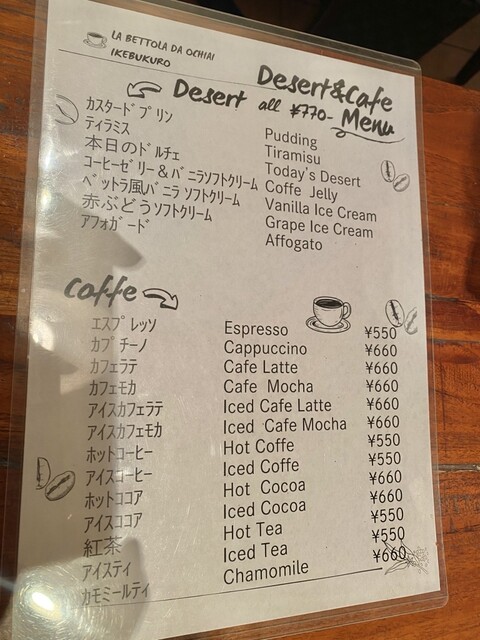 LA BETTOLA DA OCHIAI
IKEBUKURO
Desert&Cafe
Menu
Desert all ¥770-
カスタードプリン Pudding
ティラミス Tiramisu
本日のドルチェ Today's Desert
コーヒーゼリー&バニラソフトクリーム Coffe Jelly
ベットラ風バニラソフトクリーム Vanilla Ice Cream
赤ぶどうソフトクリーム Grape Ice Cream
アフォガード Affogato
caffe
エスプレッソ Espresso ¥550
カプチーノ Cappuccino ¥660
カフェラテ Cafe Latte ¥660
カフェモカ Cafe Mocha ¥660
アイスカフェラテ Iced Cafe Latte ¥660
アイスカフェモカ Iced Cafe Mocha ¥660
ホットコーヒー Hot Coffe ¥550
アイスコーヒー Iced Coffe ¥550
ホットココア Hot Cocoa ¥660
アイスココア Iced Cocoa ¥660
紅茶 Hot Tea ¥550
アイスティ Iced Tea ¥550
カモミールティ Chamomile ¥660